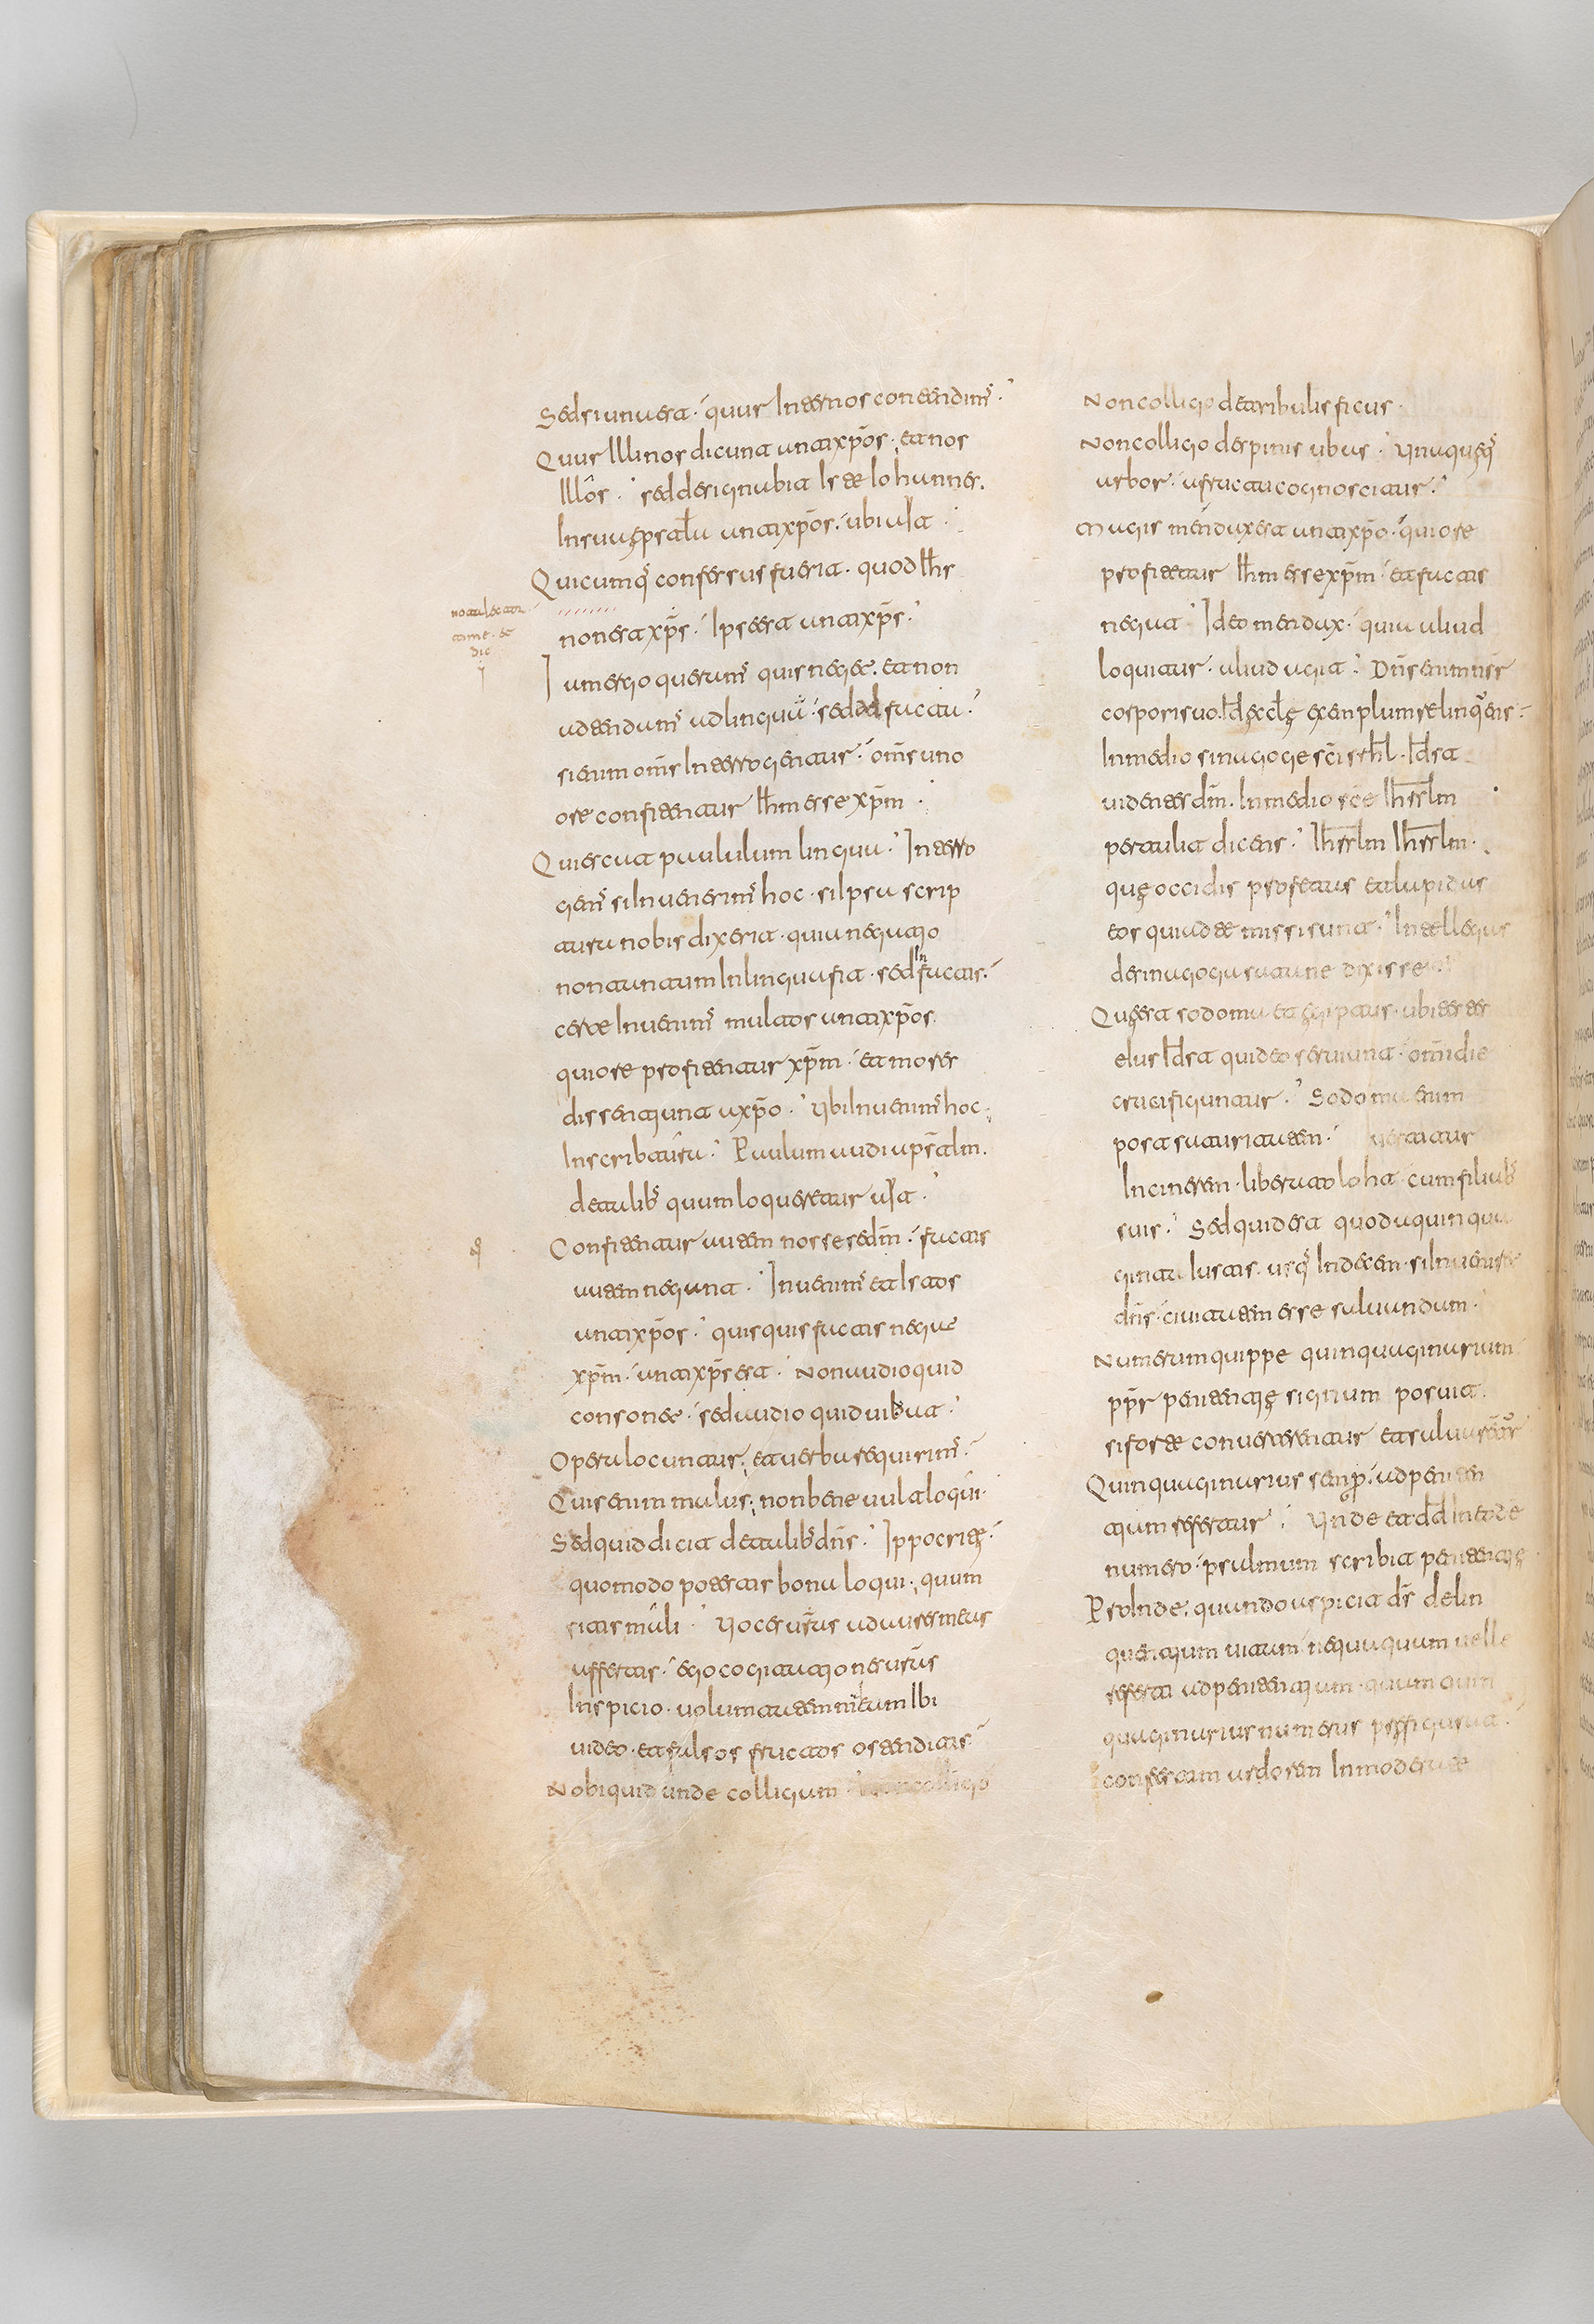 Sed si una est· quur Internos contendim̅·
Quur Illi nos dicunt antixp̅os· et nos
Illos· sed designabit Iste Iohannes.
In sua ep̅stl̅a antixp̅os· ubi ait·
Quicumq; confessus fuerit· quod Ih̅s
non est xp̅s· Ipse est antixp̅s·
Iam ergo querim' quis neget. et non
adtendam' ad linguā· sed ad facta·
si enim om̅s Interrogentur· om̅s uno
ore confitentur Ih̅m esse xp̅m·
Quiescat paululum lingua· Interro
gem' si Inuenerim' hoc· si Ipsa scrip
tura nobis dixerit· quia negatio
non tantum In lingua fit· sed In factis·
certe Inuenim' multos antixp̅os
qui ore profitentur xp̅m· et mores
dissentiunt a xp̅o· Ubi Inuenim' hoc
In scribtura· Paulum audi ap̅stlm.
de talib; quum loqueretur ait·
Confitentur autem nosse se dm̅· factis
autem negant· Inuenim' et Istos
antixp̅os· quisquis factis negat
xp̅m· antixp̅s est· Non audio quid
consonet· sed uideo quid uibat·
Opera locuntur· et uerba requirim'·
Quis enim malus· non bene uult loqui·
Sed quid dicit de talib; dn̅s· Ippocritę·
quomodo potestis bona loqui· quum
sitis mali· Uoces ur̅as ad aures meas
affertis· ego cogitationes ur̅as
Inspicio· uoluntatem malam Ibi
uideo· et falsos fructos ostenditis·
Nobi quid unde colligam· non colligo
Non colligo de tribulis ficus·
Non colligo de spinis ubas· Unaquęq;
arbor· a fructu cognoscitur·
Magis mendax est antixp̅o· qui ore
profitetur Ih̅m esse xp̅m· et factis
negat· Ideo mendax· quia aliud
loquitur· aliud agit· Dn̅s enim nsr̅
corpori suo· Id ę ecl̅ę exemplum relinquens·
In medio sinagoge sc̅i srhl̅· Id est
uidentes dm̅. In medio sc̅e Ih̅rslm
per talia dicens· Ih̅rslm Ih̅rslm·
quę occidis profetas et lapidas
eos qui ad te missi sunt· Intellegas
de sinagoga sua tune dixisse·
Quę est sodoma et ęgiptus· ubi testes
eius Id est qui deo seruiunt· omni die
crucifiguntur· Sodoma enim
post uertitur
In cinerem· liberato loht· cum filiab;
suis· Sed quid est quod a quinqua
ginta Iustis· usq; In decem· si Inuenisse
dn̅s· ciuitatem esse saluandum·
Numerum quippe quinquaginarium
pp̅r penitentię signum posuit·
si forte conuerterentur et saluarentur
Quinquaginarius semp· ad peniten
tium refertur· Unde et dd̅ In eode̅
numero· psalmum scribit penitentię
Proinde· quando aspicit ds̅ delin
quentium uitam nequaquam uelle
referri ad penitentium· quum quin
quaginarius numerus
confestim